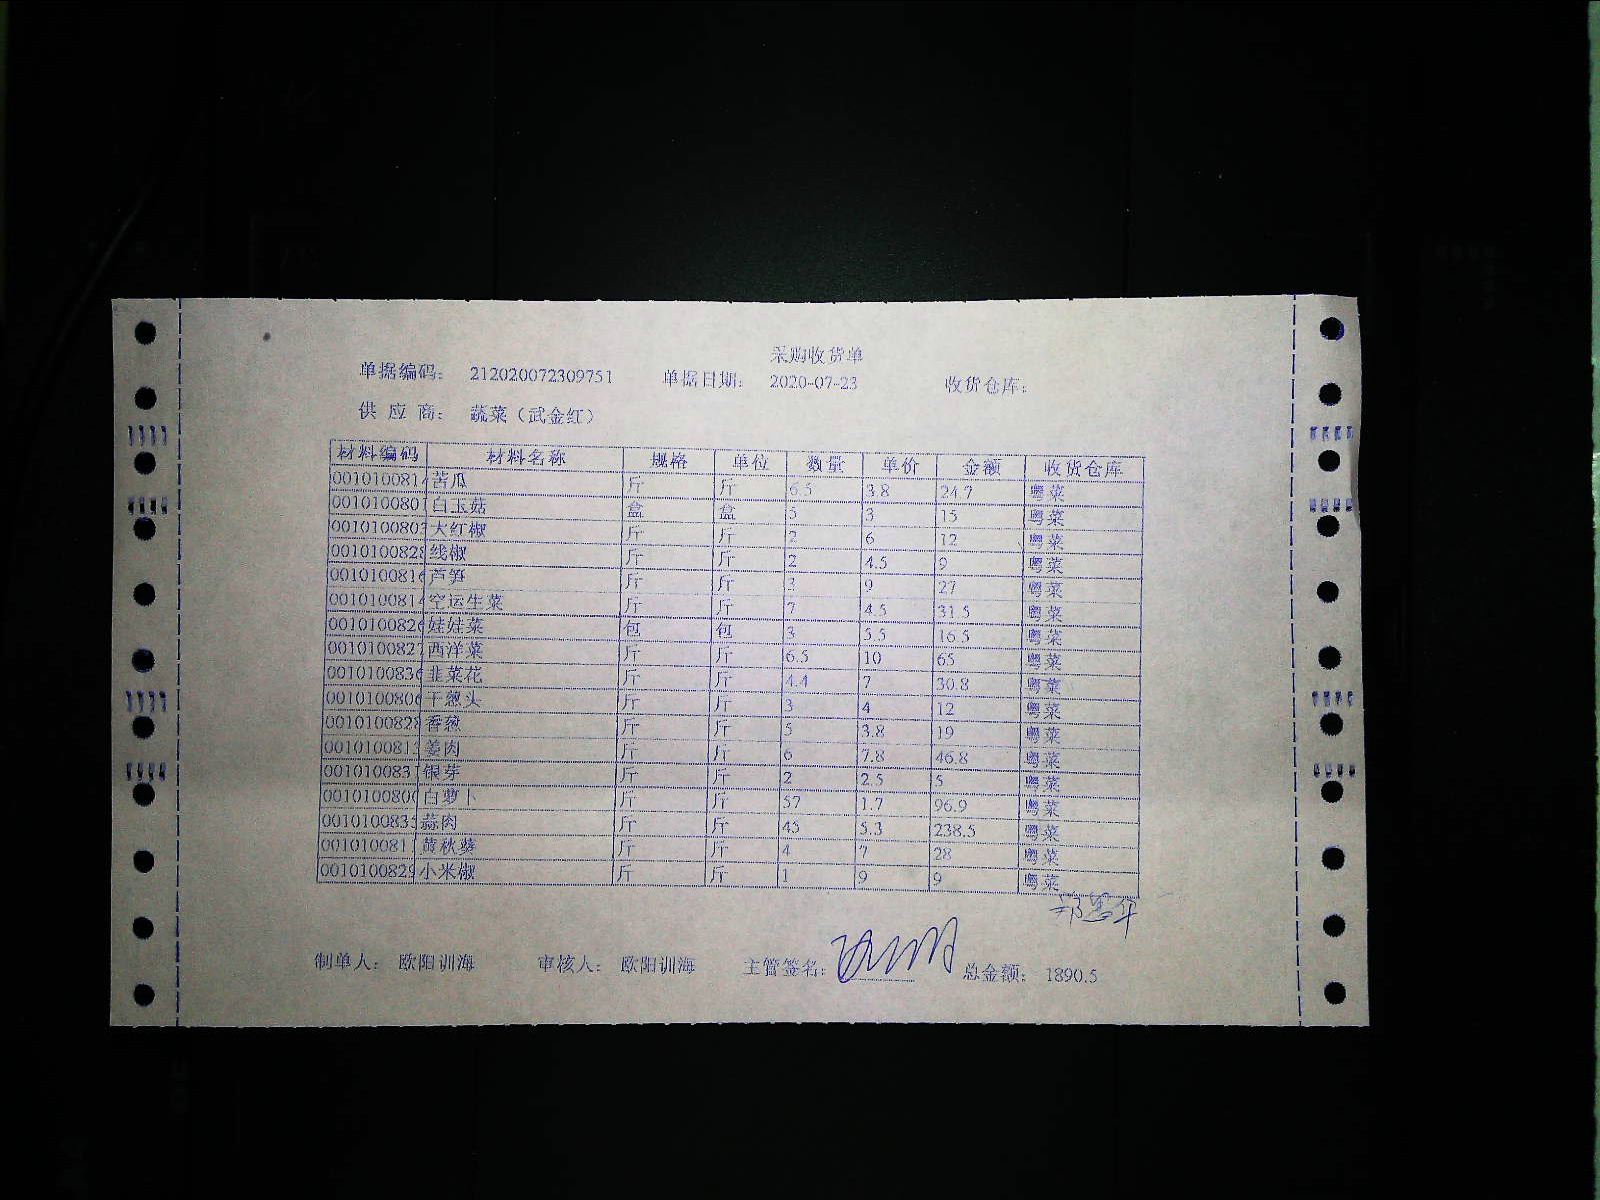 采购收货单
单据编码: 212020072309751 单据日期: 2020-07-23 收货仓库:
供 应 商: 蔬菜（武金红）
材料编码 材料名称 规格 单位 数量 单价 金额 收货仓库
0010100814 苦瓜 斤 斤 6.5 3.8 24.7 粤菜
0010100801 白玉菇 盒 盒 5 3 15 粤菜
001010080 大红椒 斤 斤 2 6 12 粤菜
0010100828 线椒 斤 斤 2 4.5 9 粤菜
0010100816 芦笋 斤 斤 3 9 27 粤菜
0010100814 空运生菜 斤 斤 7 4.5 31.5 粤菜
0010100826 娃娃菜 包 包 3 5.5 16.5 粤菜
0010100827 西洋菜 斤 斤 6.5 10 65 粤菜
0010100836 韭菜花 斤 斤 4.4 7 30.8 粤菜
0010100806 干葱头 斤 斤 3 4 12 粤菜
0010100828 香葱 斤 斤 5 3.8 19 粤菜
001010081 姜肉 斤 斤 6 7.8 46.8 粤菜
0010100831 银芽 斤 斤 2 2.5 5 粤菜
0010100800 白萝卜 斤 斤 57 1.7 96.9 粤菜
001010083 蒜肉 斤 斤 45 5.3 238.5 粤菜
0010100811 黄秋葵 斤 斤 4 7 28 粤菜
0010100829 小米椒 斤 斤 1 9 9 粤菜
制单人: 欧阳训海 审核人: 欧阳训海 主管签名: 总金额: 1890.5